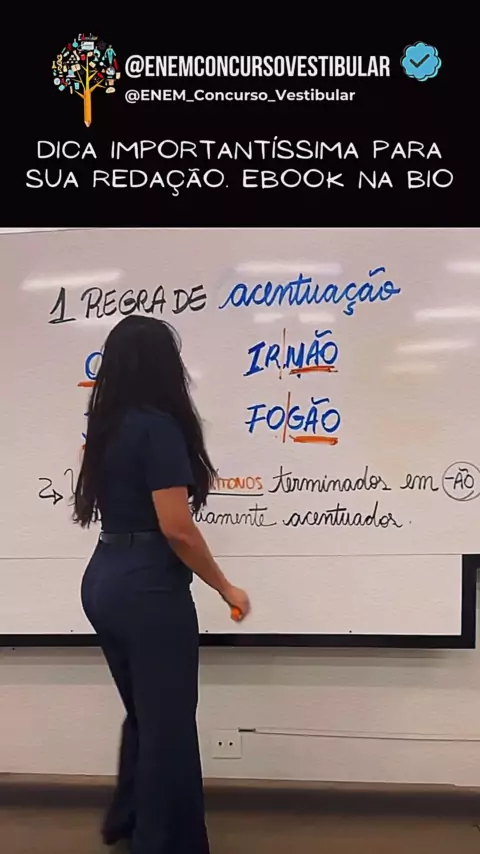 @ENEMCONCURSOVESTIBULAR
@ENEM_Concurso_Vestibular
DICA IMPORTANTÍSSIMA PARA
SUA REDAÇÃO. EBOOK NA BIO
1 REGRA DE acentuação
IR|MÃO
FO|GÃO
terminados em -ÃO
acentuados.